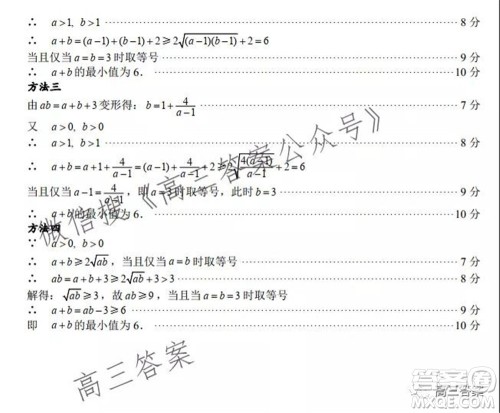 ∴ a>1, b>1 8分
∴ a+b=(a-1)+(b-1)+2≥2√((a-1)(b-1))+2=6
当且仅当 a=b=3 时取等号 9分
∴ a+b 的最小值为 6. 10分
方法三
由 ab=a+b+3 变形得: b=1+4/(a-1) 7分
又 a>0, b>0
∴ a>1, b>1 8分
∴ a+b=a+1+4/(a-1)=(a-1)+4/(a-1)+2≥2√(4(a-1)/(a-1))+2=6
当且仅当 a-1=4/(a-1), 即 a=3 时取等号, 此时 b=3 9分
∴ a+b 的最小值为 6. 10分
方法四
∵ a>0, b>0
∴ a+b≥2√ab, 当且仅当 a=b 时取等号 7分
∴ ab=a+b+3≥2√ab+3>3 8分
解得: √ab≥3, 故 ab≥9, 当且当 a=b=3 时取等号
∴ a+b=ab-3≥6 9分
即 a+b 的最小值为 6. 10分
微信搜《高三答案公众号》
高三答案
高三答案
MXQE.COM